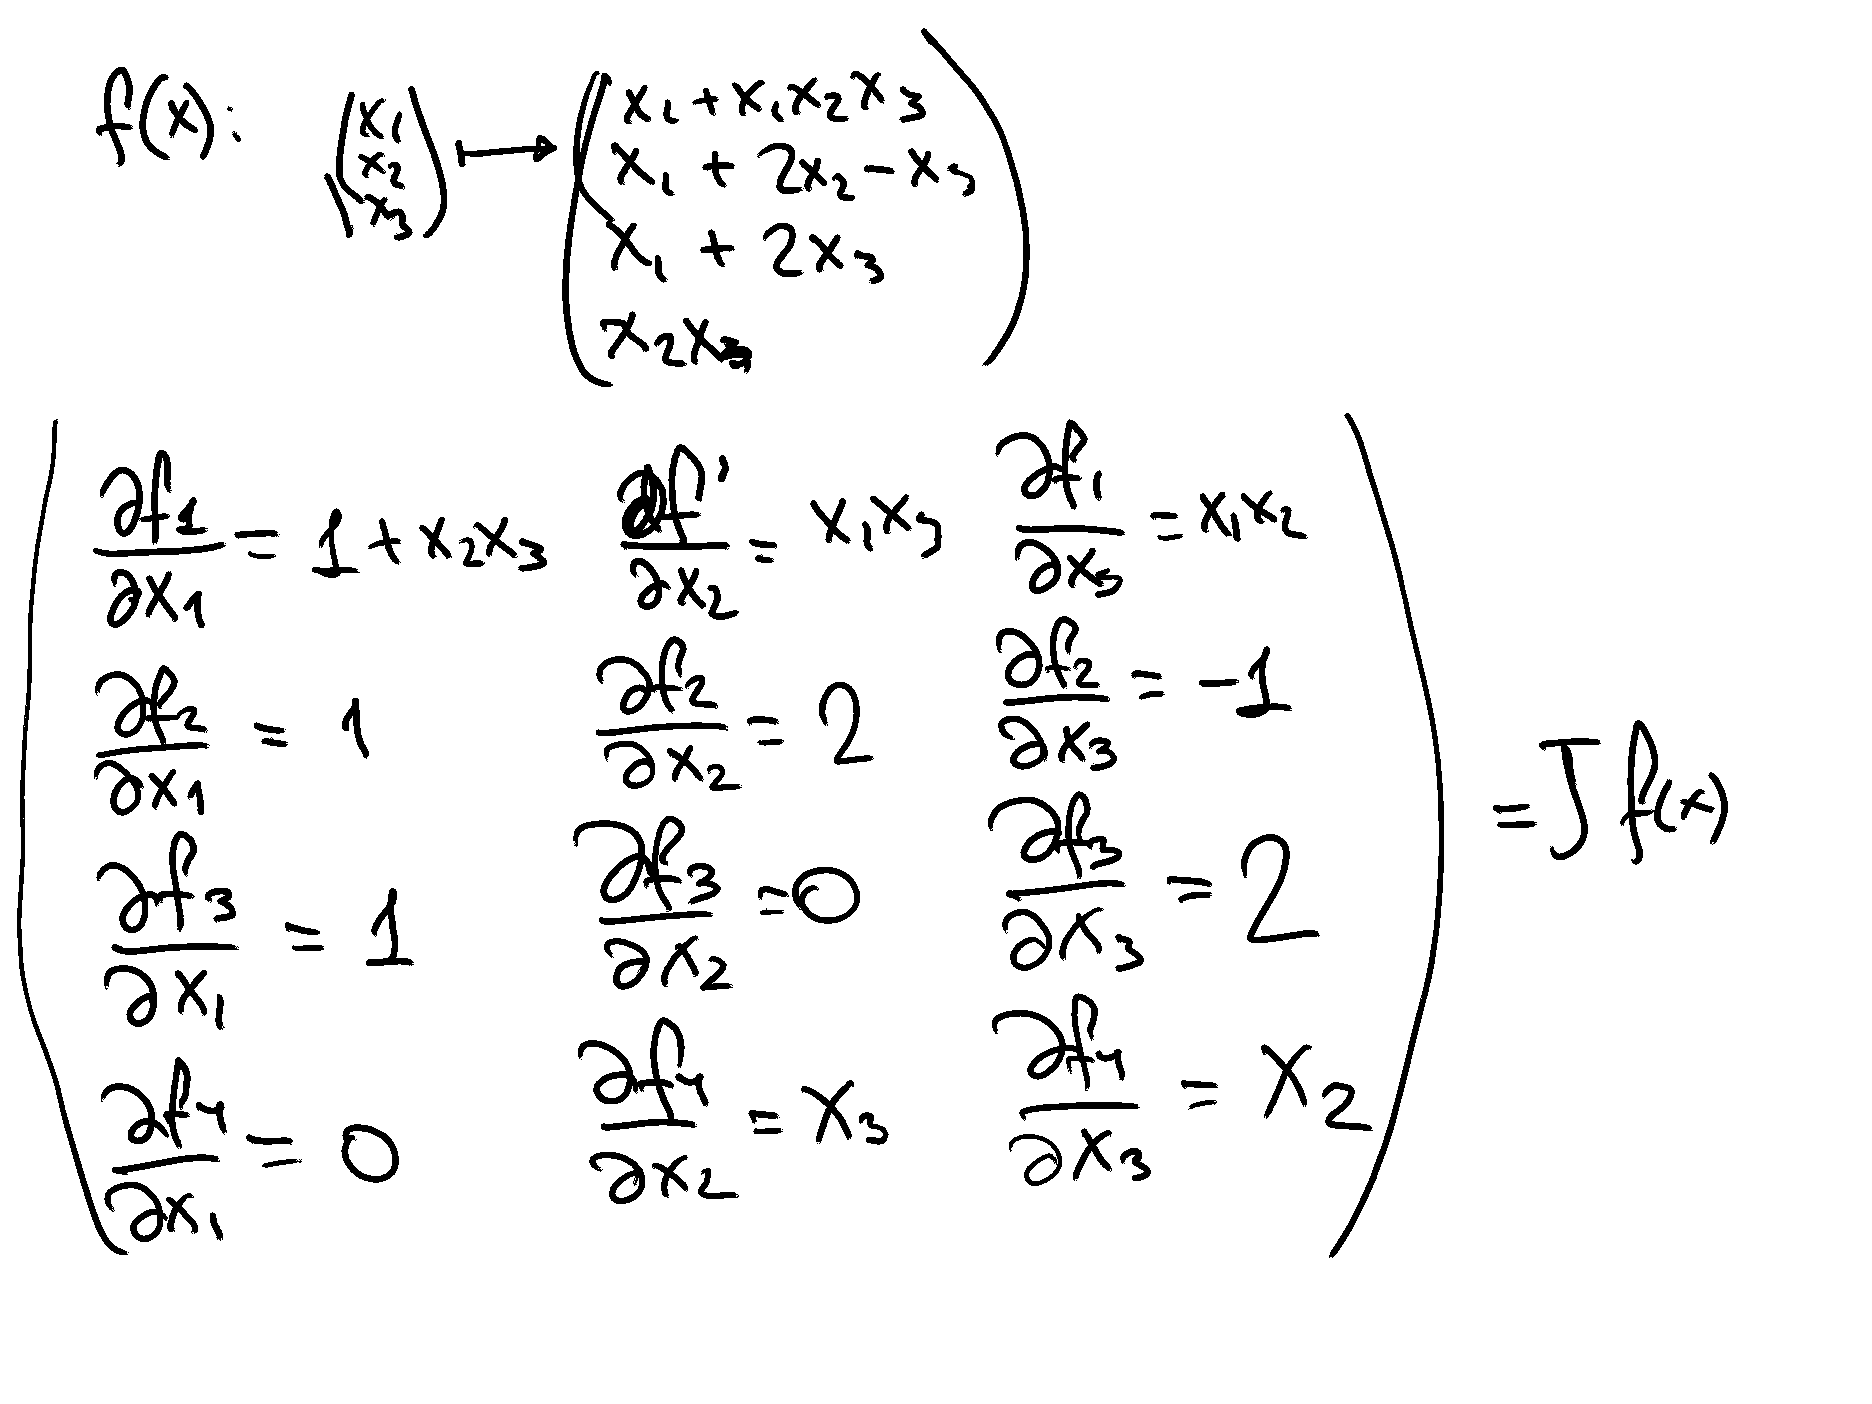 f(x): (x₁ x₂ x₃) ↦ (x₁ + x₁x₂x₃
x₁ + 2x₂ - x₃
x₁ + 2x₃
x₂x₃)
∂f₁/∂x₁ = 1 + x₂x₃ ∂f₁/∂x₂ = x₁x₃ ∂f₁/∂x₃ = x₁x₂
∂f₂/∂x₁ = 1 ∂f₂/∂x₂ = 2 ∂f₂/∂x₃ = -1
∂f₃/∂x₁ = 1 ∂f₃/∂x₂ = 0 ∂f₃/∂x₃ = 2
∂f₄/∂x₁ = 0 ∂f₄/∂x₂ = x₃ ∂f₄/∂x₃ = x₂
= J f(x)